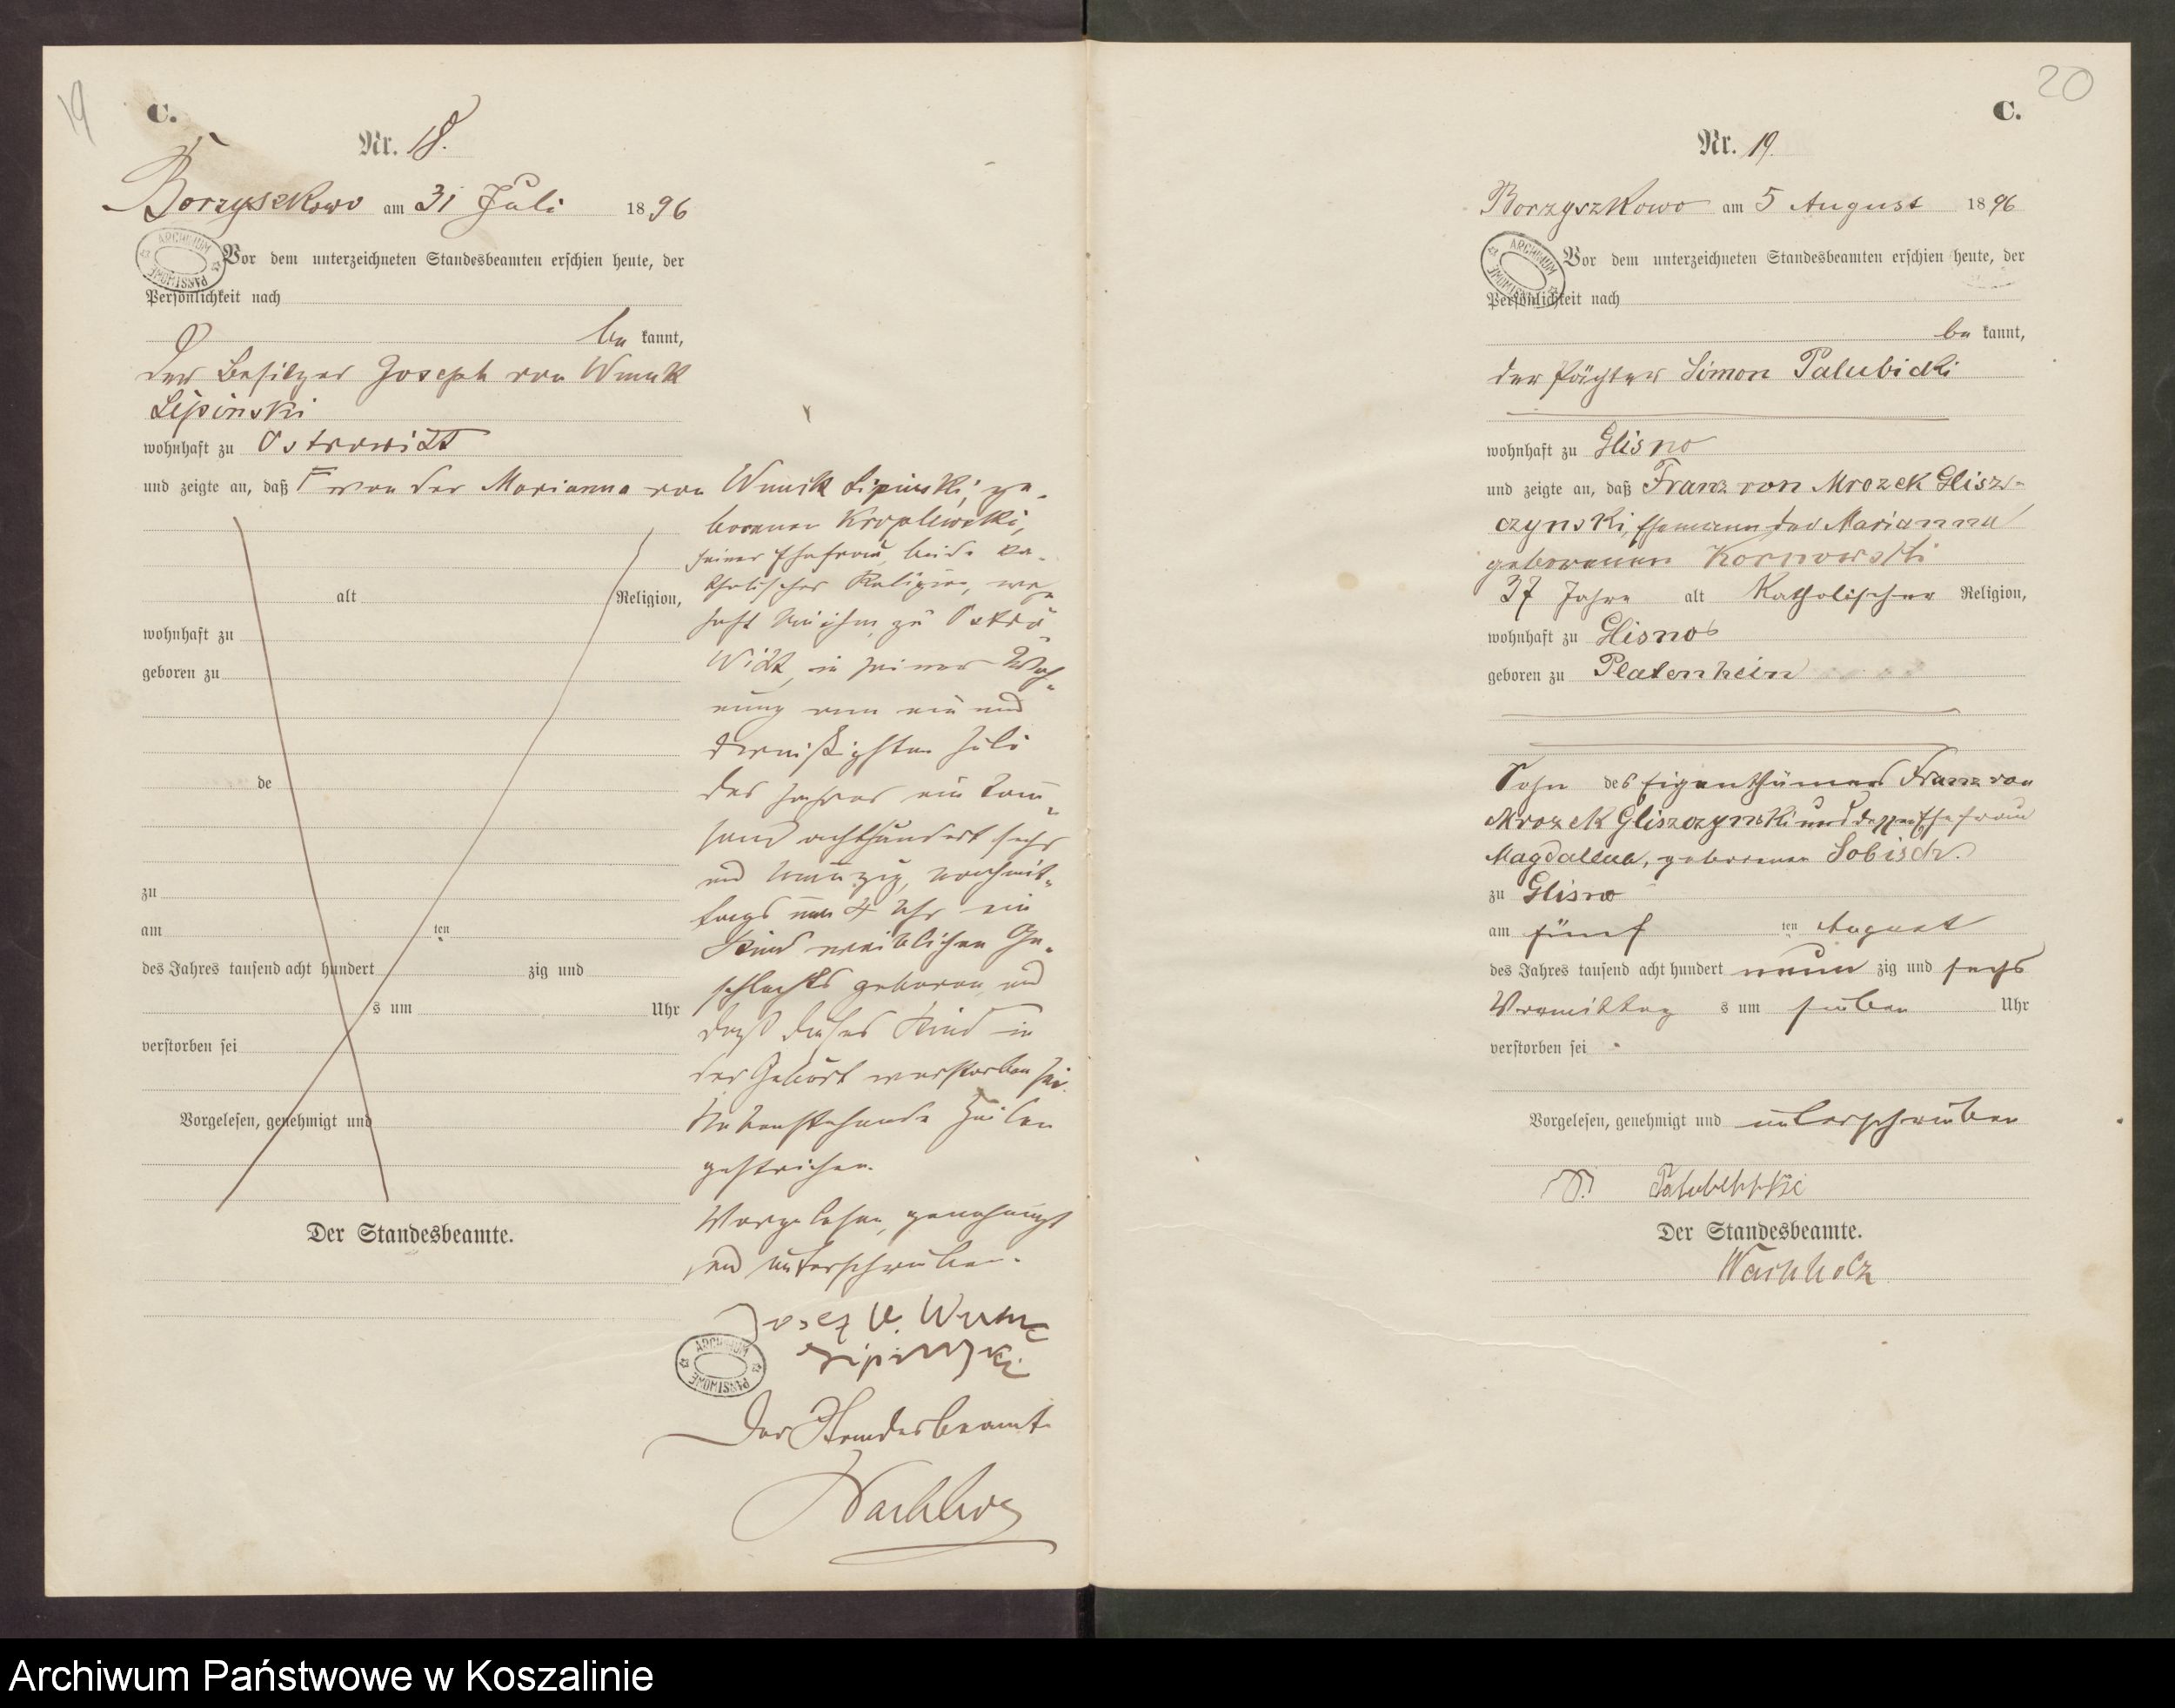 19
C.
Nr. 18.
Borzyszkowo am 31 Juli 1896
Vor dem unterzeichneten Standesbeamten erschien heute, der
ARCHIWUM PAŃSTWOWE
Persönlichkeit nach
be kannt,
der Besitzer Joseph von Wnuk
Lipinski
wohnhaft zu Ostrowitt
und zeigte an, daß von der Marianna von Wnuck Lipinski, ge-
borenen
seiner Ehefrau, beide ka-
alt Religion,
tholischer Religion, wohn-
wohnhaft zu
haft bei ihm, zu Ostro-
geboren zu
witt, in seiner Woh-
nung am ein und
dreißigsten Juli
de
des Jahres ein tau-
send achthundert sechs
zu
und neunzig, nachmit-
am ten
tags um 4 Uhr ein
Kind weiblichen Ge-
des Jahres tausend acht hundert zig und
schlechts geboren und
s um Uhr
daß dieses Kind in
verstorben sei
der Geburt verstorben sei.
Vorgelesen, genehmigt und
Nebenstehende Zeilen
gestrichen.
Vorgelesen, genehmigt
und unterschrieben.
Der Standesbeamte.
Josez v. Wnuk
Lipinski
ARCHIWUM PAŃSTWOWE
Der Standesbeamte
Wachholz
20
C.
Nr. 19.
Borzyszkowo am 5 August 1896
Vor dem unterzeichneten Standesbeamten erschien heute, der
ARCHIWUM PAŃSTWOWE
Persönlichkeit nach
be kannt,
der Pächter Simon Palubicki
wohnhaft zu Glisno
und zeigte an, daß Franz von Mrozek Glisz-
czynski, Ehemann der Marianna
geborenen Kornowski
37 Jahre alt Katholischer Religion,
wohnhaft zu Glisno
geboren zu Platenhein
Sohn des Eigenthümers Franz von
Mrozek Gliszczynski und dessen Ehefrau
Magdalena, geborenen
zu Glisno
am fünf ten August
des Jahres tausend acht hundert neun zig und sechs
Vormittag s um sieben Uhr
verstorben sei
Vorgelesen, genehmigt und unterschrieben
Der Standesbeamte.
Wachholz
Archiwum Państwowe w Koszalinie